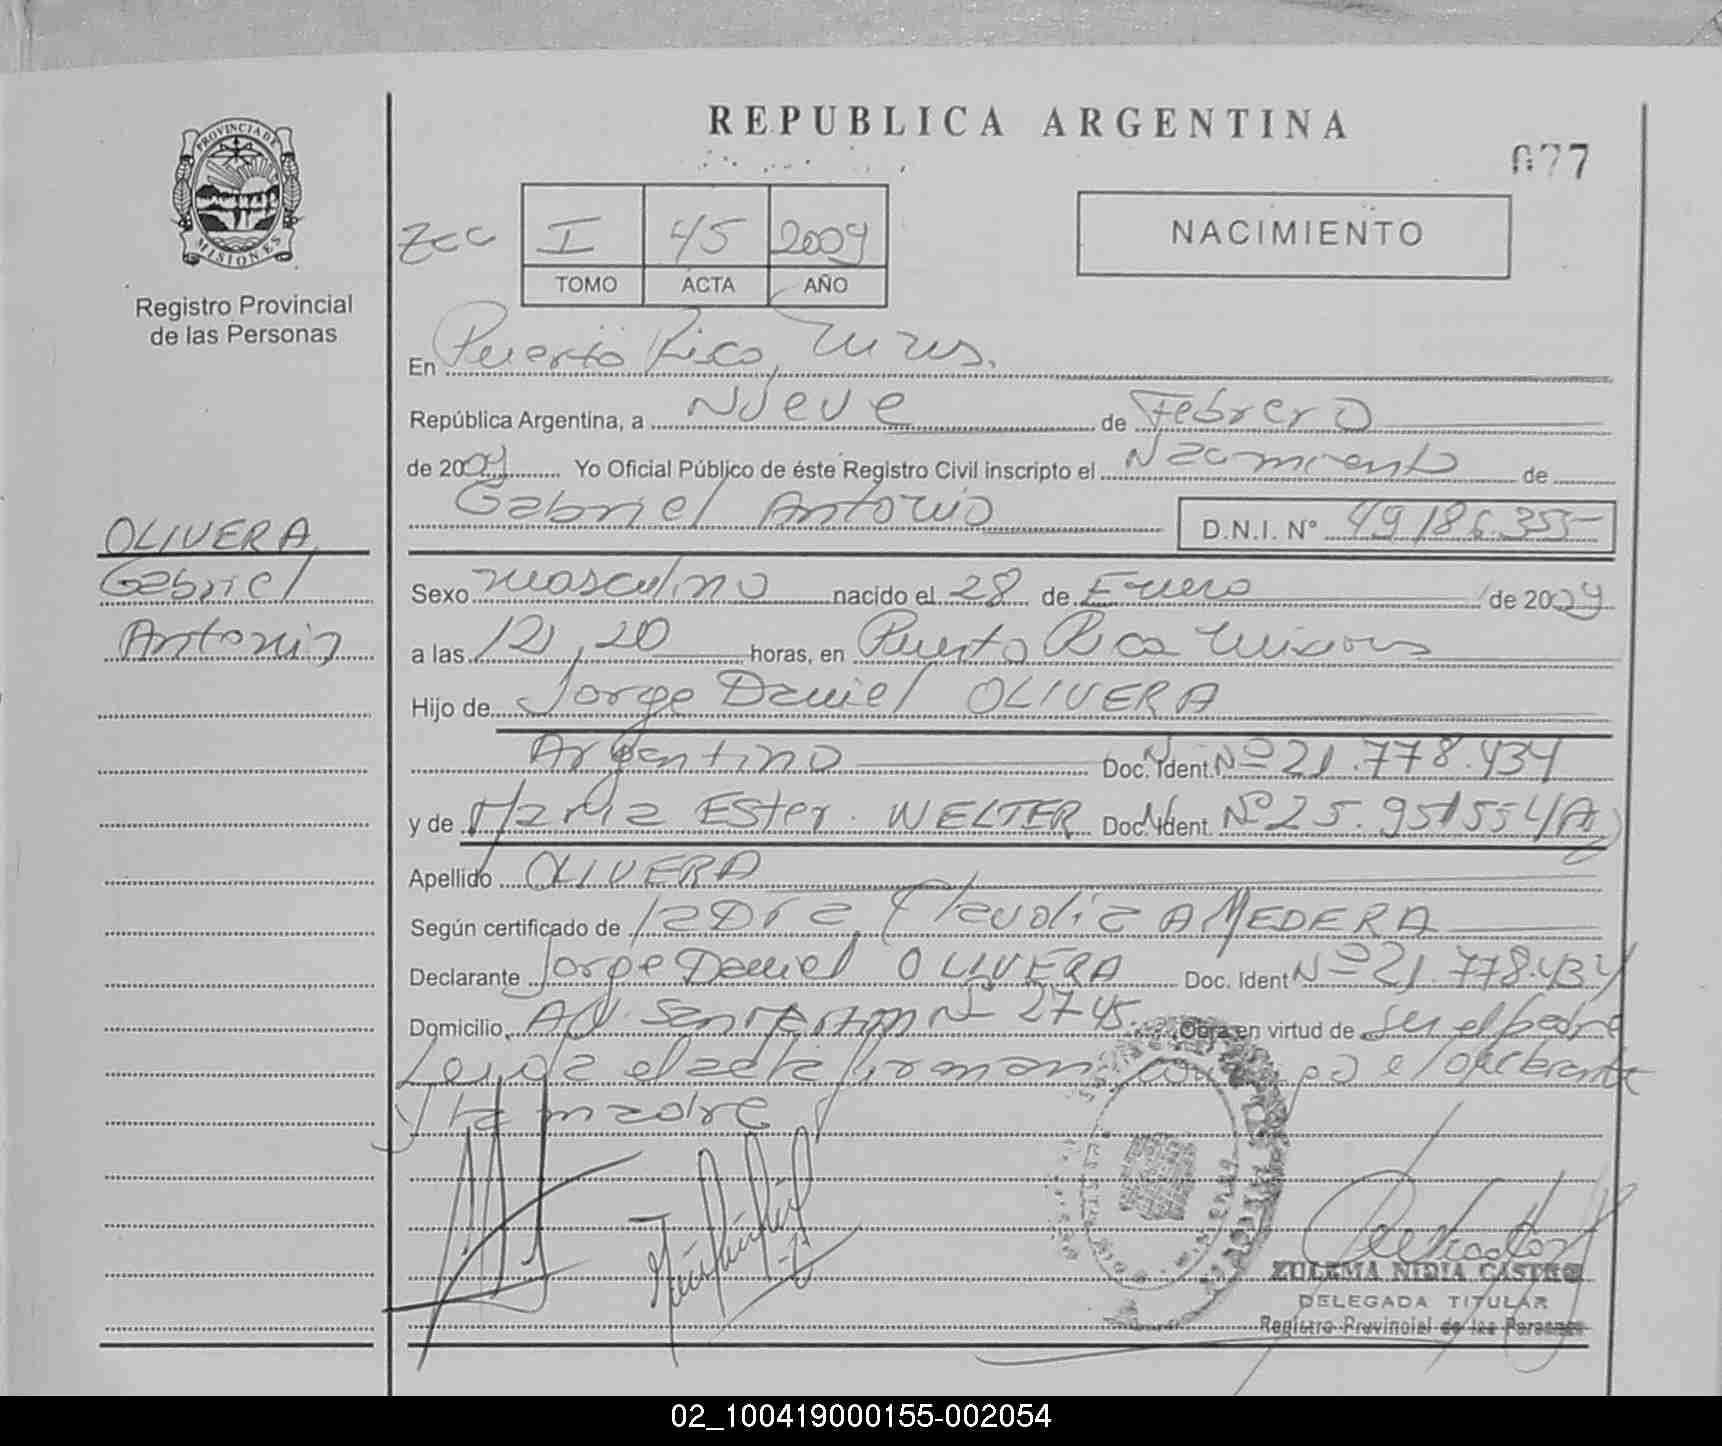 REPUBLICA ARGENTINA
077
PROVINCIA DE MISIONES
Registro Provincial
de las Personas
I 45 2009
TOMO ACTA AÑO
NACIMIENTO
En Puerto Rico,
República Argentina, a Nueve de Febrero
de 2009 Yo Oficial Público de éste Registro Civil inscripto el Nacimiento de
Gabriel Antonio D.N.I. N° 49.186.355-
OLIVERA
Gabriel
Antonio
Sexo masculino nacido el 28 de Enero de 2009
a las 12,20 horas, en Puerto Rico Misiones
Hijo de Jorge Daniel OLIVERA
Argentino Doc. Ident. Nº 21.778.434
y de Maria Ester WELTER Doc. Ident. Nº 25.951554(A)
Apellido OLIVERA
Según certificado de la Dra Claudia AMEDERA
Declarante Jorge Daniel OLIVERA Doc. Ident Nº 21.778.434
Domicilio Av. San Martin Nº 2745. Obra en virtud de ser el padre
Leida el acta firman conmigo el declarante
y la madre
ZULEMA NIDIA CASTRO
DELEGADA TITULAR
Registro Provincial de las Personas
02_100419000155-002054